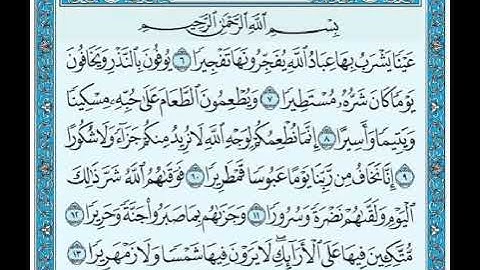 بِسْمِ ٱللَّهِ ٱلرَّحْمَٰنِ ٱلرَّحِيمِ
عَيْنًا يَشْرَبُ بِهَا عِبَادُ ٱللَّهِ يُفَجِّرُونَهَا تَفْجِيرًا ٦ يُوفُونَ بِٱلنَّذْرِ وَيَخَافُونَ
يَوْمًا كَانَ شَرُّهُۥ مُسْتَطِيرًا ٧ وَيُطْعِمُونَ ٱلطَّعَامَ عَلَىٰ حُبِّهِۦ مِسْكِينًا
وَيَتِيمًا وَأَسِيرًا ٨ إِنَّمَا نُطْعِمُكُمْ لِوَجْهِ ٱللَّهِ لَا نُرِيدُ مِنكُمْ جَزَآءً وَلَا شُكُورًا
٩ إِنَّا نَخَافُ مِن رَّبِّنَا يَوْمًا عَبُوسًا قَمْطَرِيرًا ١٠ فَوَقَىٰهُمُ ٱللَّهُ شَرَّ ذَٰلِكَ
ٱلْيَوْمِ وَلَقَّىٰهُمْ نَضْرَةً وَسُرُورًا ١١ وَجَزَىٰهُم بِمَا صَبَرُوا۟ جَنَّةً وَحَرِيرًا ١٢
مُّتَّكِـِٔينَ فِيهَا عَلَى ٱلْأَرَآئِكِ لَا يَرَوْنَ فِيهَا شَمْسًا وَلَا زَمْهَرِيرًا ١٣